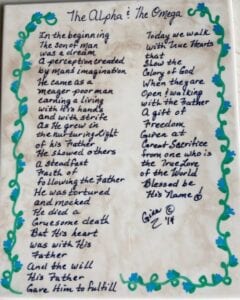 The Alpha & The Omega
In the beginning
The son of man
was a dream
A perception created
by man's imagination
He came as a
meager poor man
earning a living
with his hands
and with strife
As He grew in
the nurturing Light
of his Father
He showed others
A steadfast
Faith of
following the Father
He was tortured
and mocked
He died a
Gruesome death
But His heart
was with His
Father
And the will
His Father
Gave Him to fulfill
Today we walk
with True Hearts
that
Show the
Glory of God
When they are
Open & walking
with the Father
A gift of
Freedom
Given at
Great Sacrifice
from one who is
the True Love
of the World
Blessed be
His Name!
©
'19